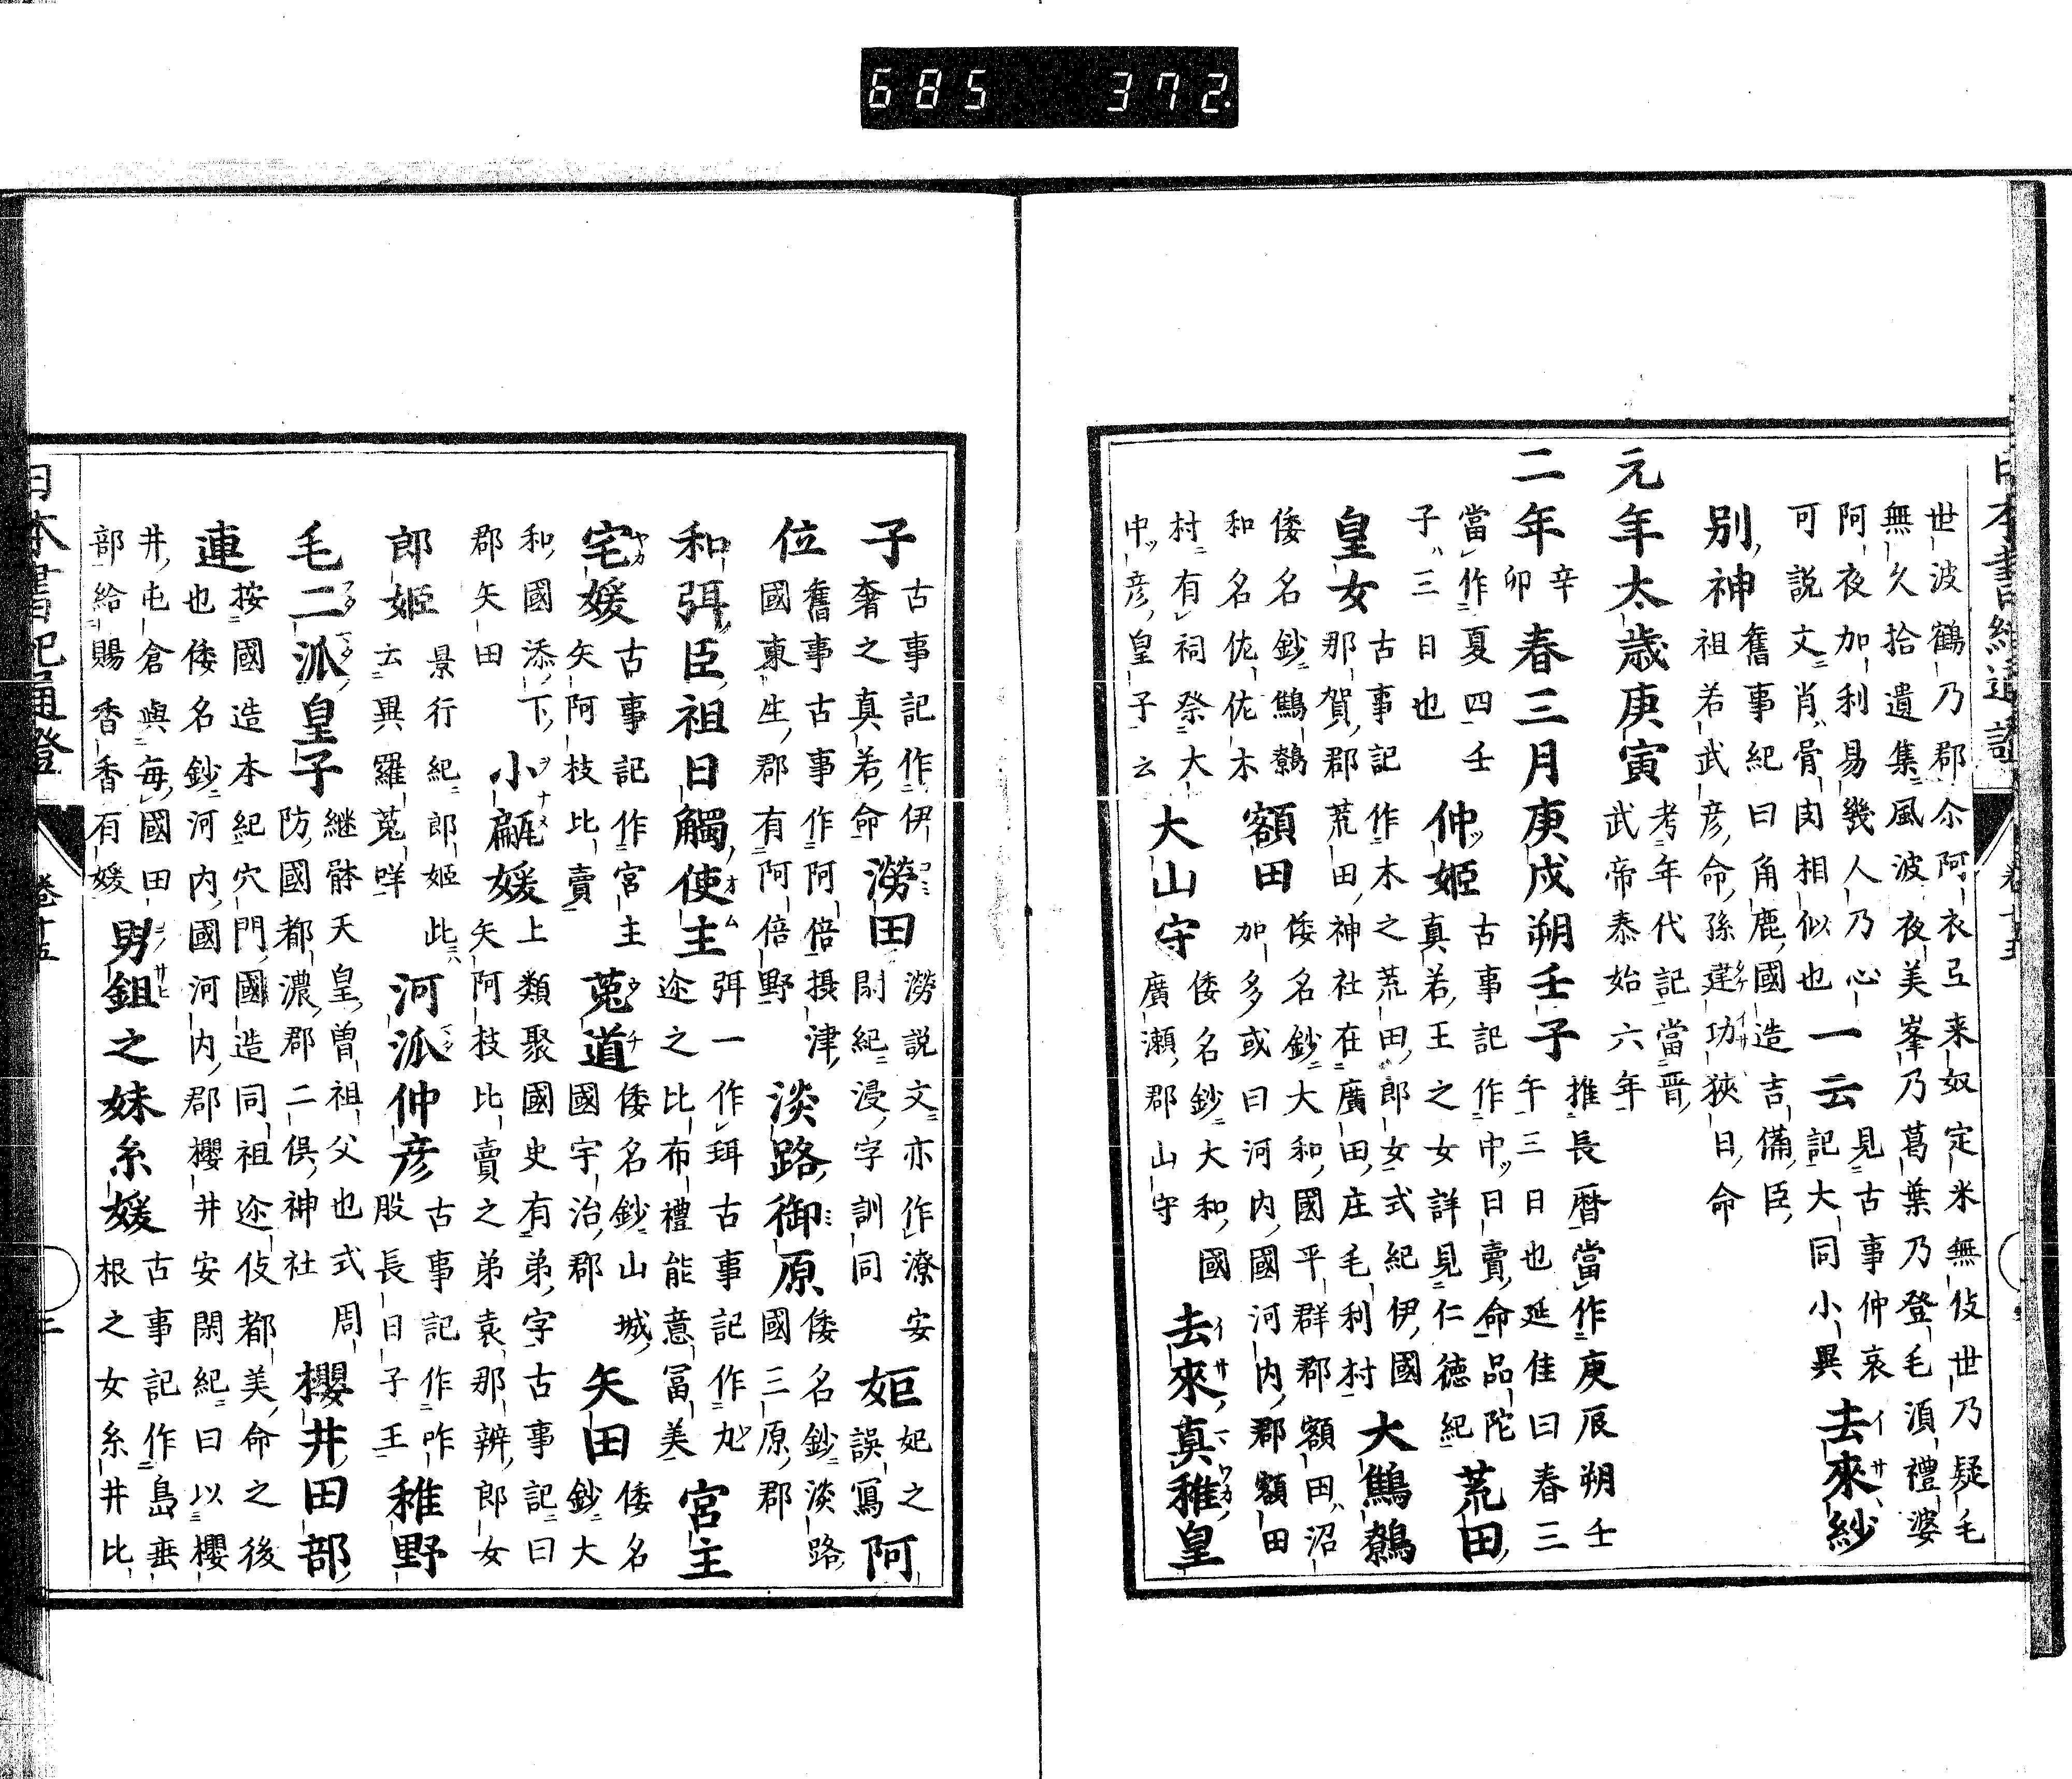 世波鶴乃郡尒阿衣弖来奴定米無伎世乃疑毛
無久拾遺集風波夜美峯乃葛葉乃登毛湏禮婆
阿夜加利易幾人乃心
可説文肖骨肉相似也
一云
見古事仲哀
記大同小異
去來紗
別神
舊事紀曰角鹿國造吉備臣
祖若武彦命孫建功狹日命
元年太歳庚寅
考年代記當晋
武帝泰始六年
二年
辛
卯
春三月庚戌朔壬子
推長暦當作庚辰朔壬
午三日也延佳曰春三
當作夏四壬
子三日也
仲姫
古事記作中日賣命品陀
真若王之女詳見仁徳紀
荒田
皇女
古事記作木之荒田郎女式紀伊國
那賀郡荒田神社在廣田庄毛利村
大鷦鷯
倭名鈔鷦鷯
和名佐佐木
額田
倭名鈔大和國平群郡額田沼
加多或曰河内國河内郡額田
村有祠祭大
中彦皇子云
大山守
倭名鈔大和國
廣瀬郡山守
去來真稚皇
子
古事記作伊
奢之真若命
澇田
澇説文亦作潦安
閑紀浸字訓同
姖
妃之
誤寫
阿
位
舊事古事作阿倍摂津
國東生郡有阿倍野
淡路御原
倭名鈔淡路
國三原郡
和弭臣祖日觸使主
弭一作珥古事記作丸
迩之比布禮能意冨美
宮主
宅媛
古事記作宮主
矢阿枝比賣
菟道
倭名鈔山城
國宇治郡
矢田
倭名
鈔大
和國添下
郡矢田
小甂媛
上類聚國史有弟字古事記曰
矢阿枝比賣之弟袁那辨郎女
郎姫
景行紀郎姫此
云異羅菟咩
河派仲彦
古事記作咋
股長日子王
稚野
毛二派皇子
継躰天皇曽祖父也式周
防國都濃郡二俣神社
櫻井田部
連
按國造本紀穴門國造同祖迩伎都美命之後
也倭名鈔河内國河内郡櫻井安閑紀曰以櫻
井屯倉與毎國田
部給賜香香有媛
男鉏之妹糸媛
古事記作島垂
根之女糸井比
日本書紀通證
卷十五
二
685 372